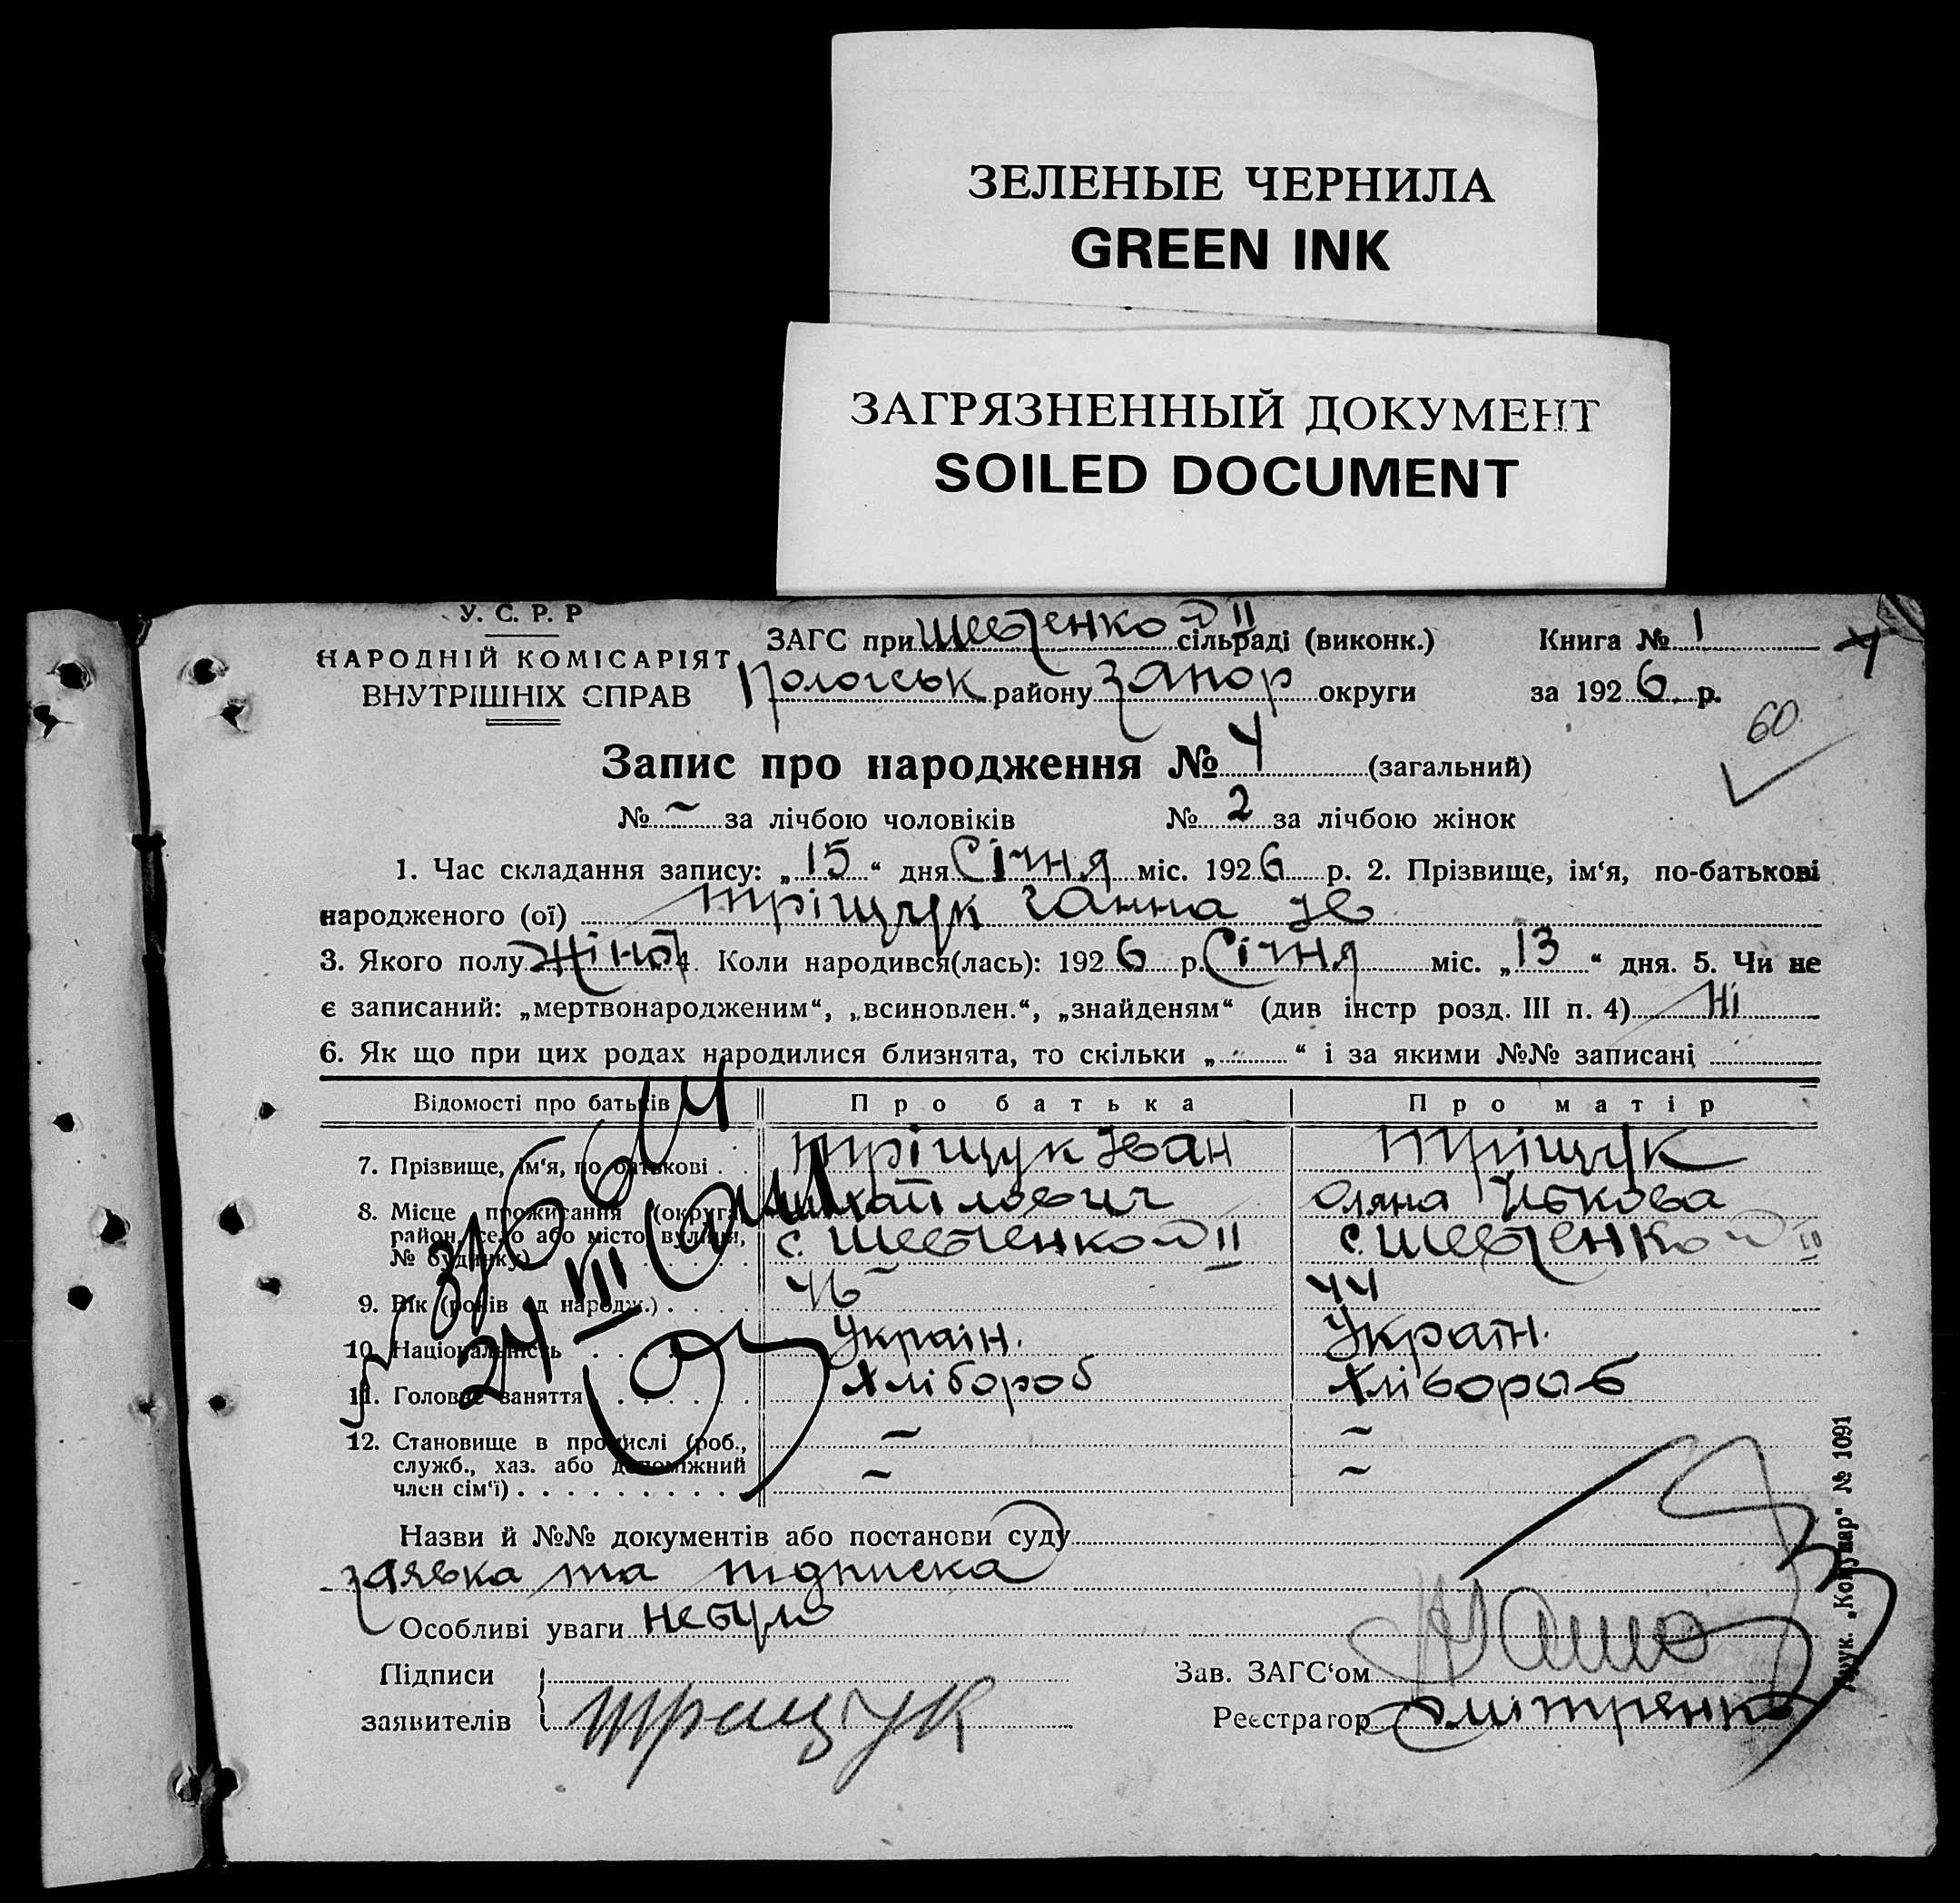 ЗЕЛЕНЫЕ ЧЕРНИЛА
GREEN INK
ЗАГРЯЗНЕННЫЙ ДОКУМЕНТ
SOILED DOCUMENT
У. С. Р. Р
НАРОДНІЙ КОМІСАРІЯТ
ВНУТРІШНІХ СПРАВ
ЗАГС при Шевченков II сільраді (виконк.) Книга № 1
Пологськ району Запор округи за 1926 р.
60
Запис про народження № 4 (загальний)
№ – за лічбою чоловіків № 2 за лічбою жінок
1. Час складання запису: „15“ дня Січня міс. 1926 р. 2. Прізвище, ім‘я, по-батькові
народженого (ої) Тріщук Ганна Ів
3. Якого полу Жіноч 4. Коли народився(лась): 1926 р. Січня міс. „13“ дня. 5. Чи не
є записаний: „мертвонародженим“, „всиновлен.“, „знайденям“ (див інстр розд. III п. 4) Ні
6. Як що при цих родах народилися близнята, то скільки „ “ і за якими №№ записані
Відомості про батьків Про батька Про матір
7. Прізвище, ім‘я, по батькові Тріщук Іван Тріщук
Михайлович Оляна
8. Місце проживання (округа,
район, село або місто, вулиця,
№ будинку) с. Шевченков II с. Шевченков II
9. Вік (років од народж.) 46 44
10. Національність Україн. Україн.
11. Головне заняття Хлібороб Хлібороб
24 III
12. Становище в промислі (роб., – –
служб., хаз. або допоміжний – –
член сім‘ї)
Назви й №№ документів або постанови суду
заявка та підписка
Особливі уваги небуло
Підписи
заявителів Трищук
Зав. ЗАГС‘ом
Реєстратор Дмітренко
Друк. „Комунар“ № 1091